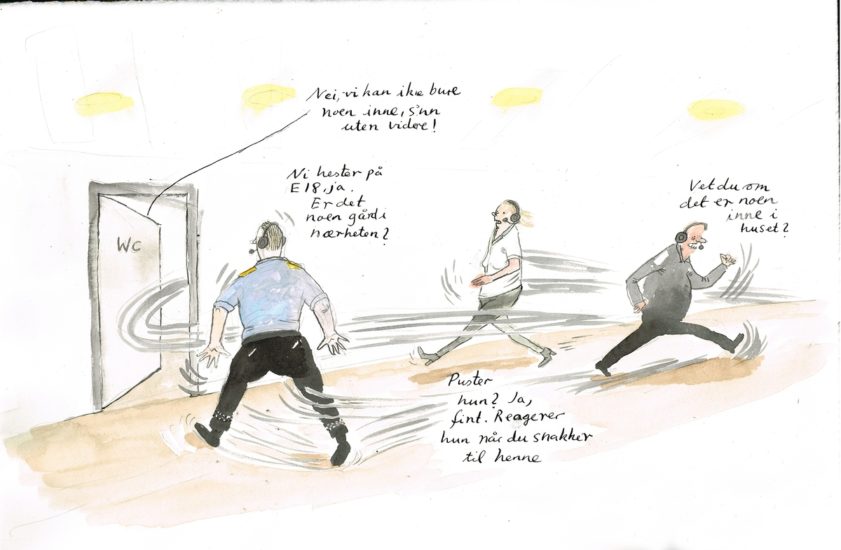 Nei, vi kan ikke bure
noen inne, s'nn
uten videre!
Ni hester på
E18, ja.
Er det
noen gård i
nærheten?
WC
Vet du om
det er noen
inne i
huset?
Puster
hun? Ja,
fint. Reagerer
hun når du snakker
til henne